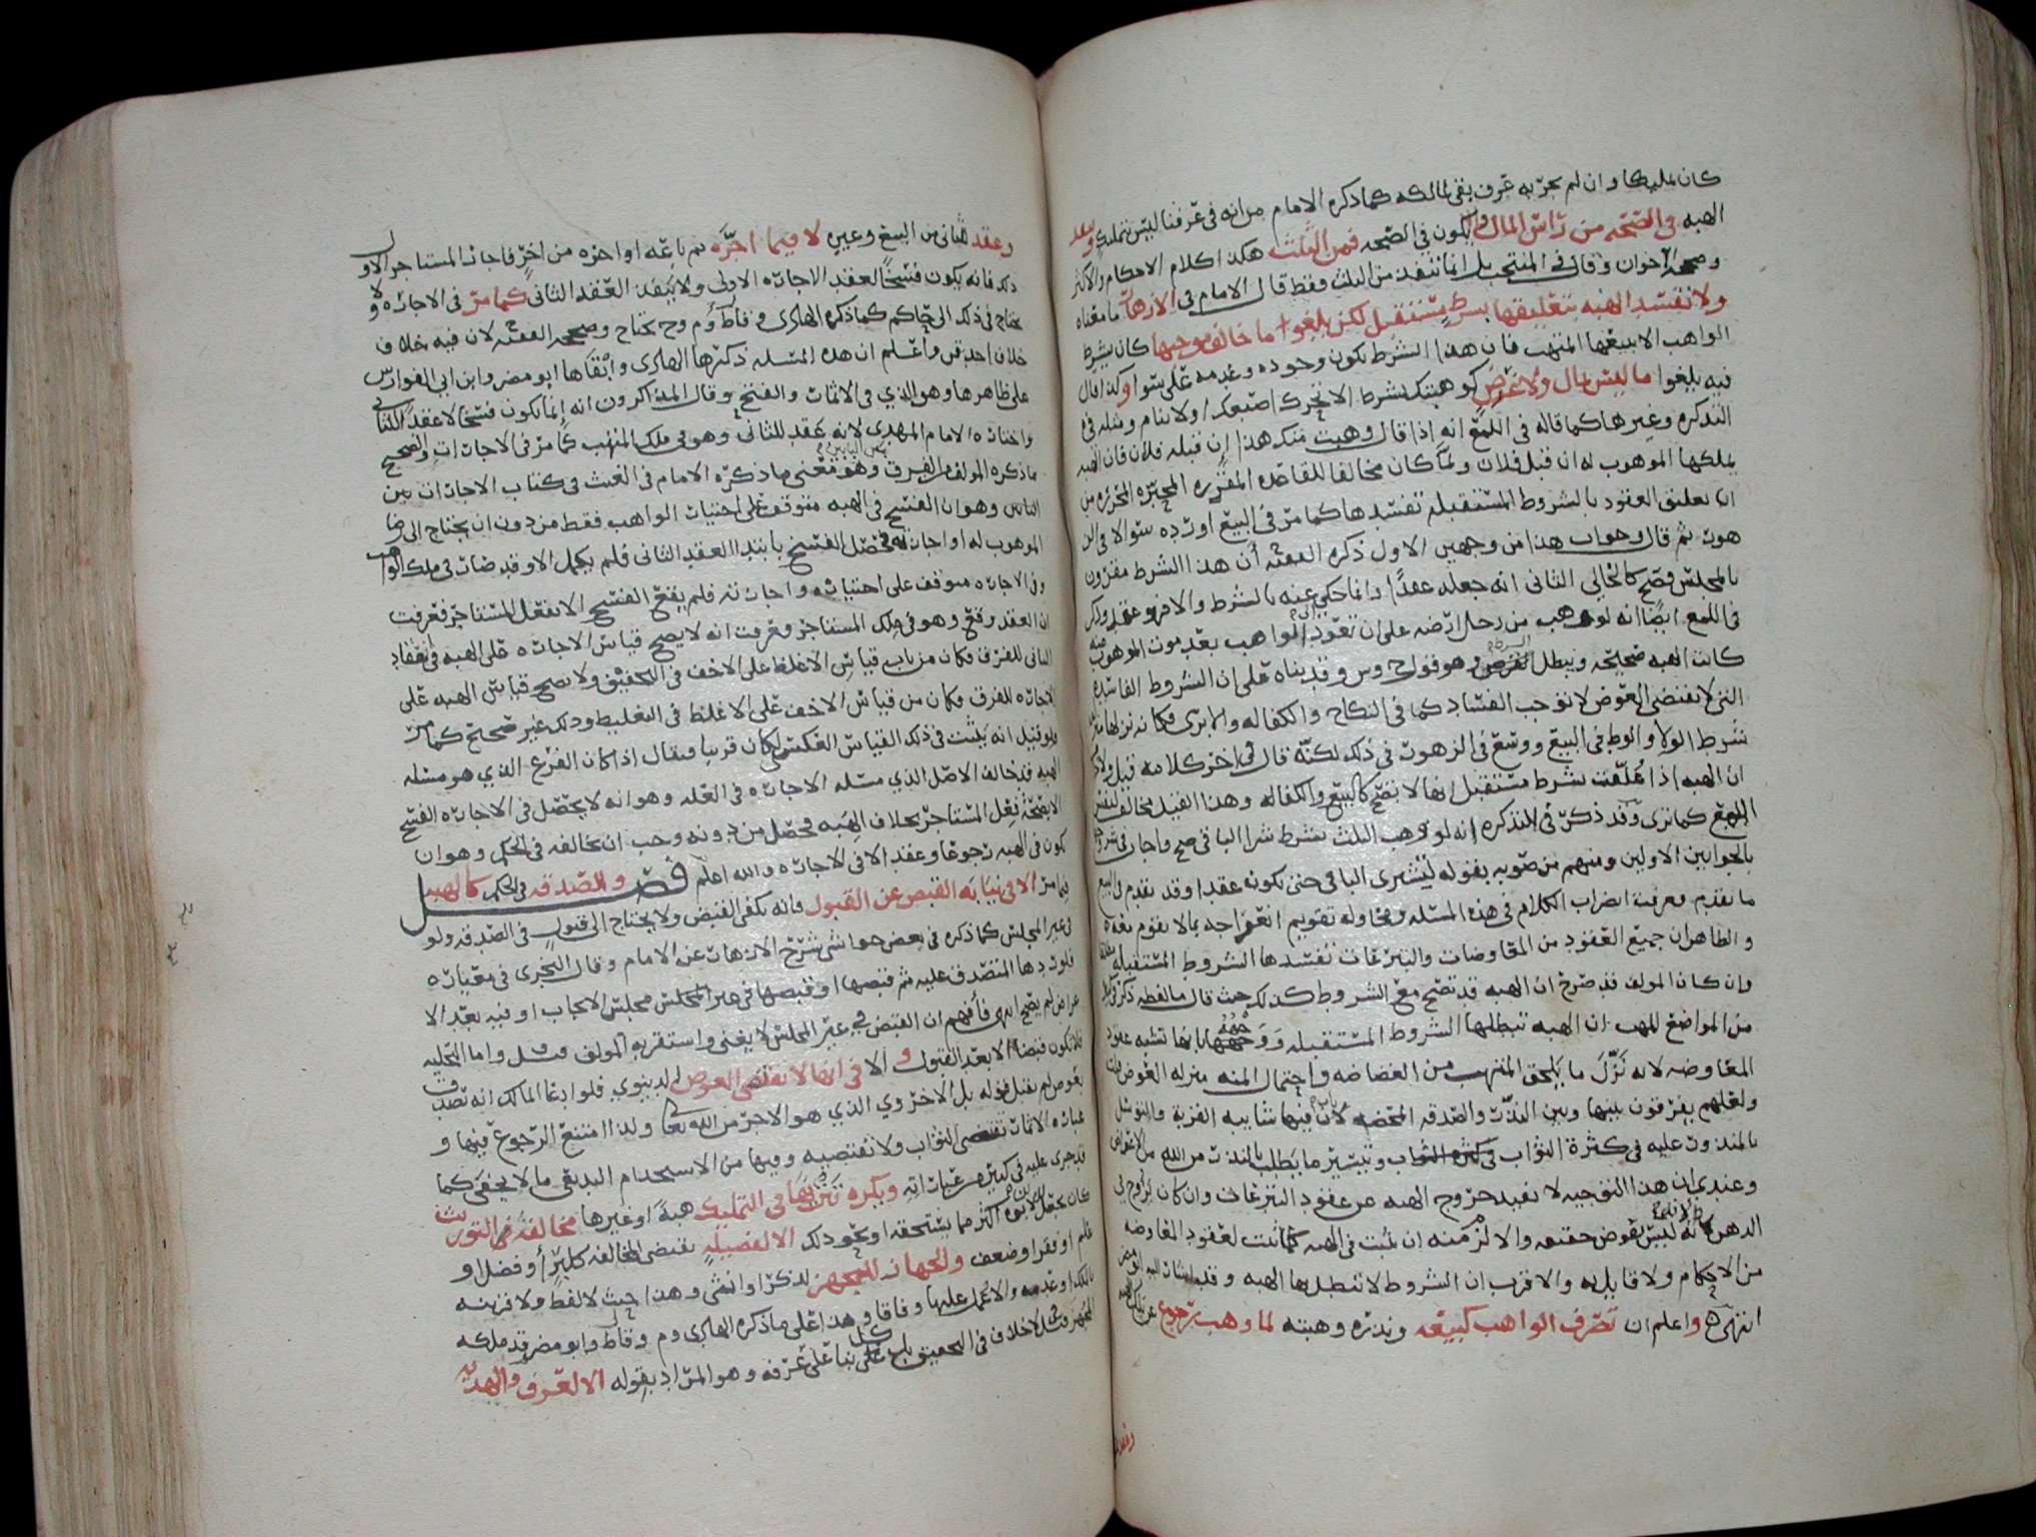 كان تمليكا وان لم يجر به عرف بقي لمالكه كما ذكره الامام من انه في عرفنا ليس بتمليك وتنفذ
الهبه في الصحه من راس المال و لا يكون في الصحه فمن الثلث هكذا كلام الاحكام والاكثر
وصححه الاخوان وقال في المنتخب بل انما تنفذ من الثلث فقط قال الامام في الازهار ما معناه
ولا تفسد الهبه بتعليقها بشرط مستقبل لكن يلغوا ما خالف موجبها كان يشرط
الواهب الا يبيعها المتهب فان هذا الشرط يكون وجوده وعدمه على سوا وكذا قال
فيه يلغوا ما ليس بمال ولا غرض كوهبتك بشرط الا تحرك اصبعك او لا تنام ومثله في
التذكره وغيرها كما قاله في اللمع انه اذا قال وهبت منك هذا ان قبله فلان فان الهبه
يملكها الموهوب له ان قبل فلان ولما كان مخالفا للقاعده المقرره المحبره المحرره من
ان تعليق العقود بالشروط المستقبله تفسدها كما مر في البيع اورده سوالا في الز
هور ثم قال وجواب هذا من وجهين الاول ذكره الفقيه ان هذا الشرط مقرون
بالمجلس فصح كالحالي الثاني انه جعله عقدا وانما حكي عنه بالشرط والافهو عقد وذكر
في اللمع ايضا انه لو وهب من رجل ارضه على ان تعود الى الواهب بعد موت الموهوب منه
كانت الهبه صحيحه ويبطل الشرط وهو قول ح وس وقد بناه على ان الشروط الفاسده
التي لا تقتضي العوض لا توجب الفساد كما في النكاح والكفاله والابرى فكانه نزلها
شرط الولا والوطي في البيع ووسع في الزهور في ذلك لكنه قال في اخر كلامه قيل ولا
ان الهبه اذا علقت بشرط مستقبل انها لا تصح كالبيع والكفاله وهذا القيل مخالف لنفس
اللمع كما ترى وقد ذكر في التذكره انه لو وهب الثلث بشرط شرا الباقي صح واجاب في شرحه
بالجوابين الاولين ومنهم من صوبه بقوله ليشترى الباقي حتى يكون عقدا وقد تقدم في البيع
ما تقدم فعرفت اضراب الكلام في هذه المسئله ومحاوله تقويم اعوجاجه بما لا تقوم بعده
والظاهر ان جميع العقود من المعاوضات والتبرعات تفسدها الشروط المستقبله
وان كان المولف قد صرح ان الهبه قد تصح مع الشروط كذلك حيث قال ما لفظه ذكر في
من المواضع للمهب ان الهبه تبطلها الشروط المستقبله ووجهها بانها تشبه عقود
المعاوضه لانه نزل ما يلحق المتهب من الغضاضه واحتمال المنه منزله العوض
ولعلهم يفرقون بينها وبين النذر والصدقه المحضه لان فيها شايبه القربة والتوسل
بالمنذور عليه في كثرة الثواب وتيسير ما يطلب بالنذر من الله من الاغراض
وعندي ان هذا التوجيه لا يفيد خروج الهبه عن عقود التبرعات وان كان
الذهن لانه ليس بعوض حقيقه والا لزمنه ان يثبت في الهبه كما ثبت لعقود المعاوضه
من الاحكام ولا قايل به والاقرب ان الشروط لا تبطل بها الهبه وقد
انتهى واعلم ان تصرف الواهب كبيعه ونذره وهبته لما وهب رجوع عن تلك الهبه
وعقد للثاني من البيع وغيره لا فيما اجره ثم باعه او اجره من اخر فاجاز المستاجر الاول
ذلك فانه يكون فسخا لعقد الاجاره الاولى ولا ينفذ العقد الثاني كما مر في الاجاره ولا
يحتاج في ذلك الى حاكم كما ذكره الهادى وقال م وح يحتاج وصححه الفقيه لان فيه خلاف
خلاف احد قوم واعلم ان هذه المسئله ذكرها الهادى وابقاها ابو مضر وابن ابي الفوارس
على ظاهرها وهو الذي في الاثمار والفتح وقال المذاكرون انه انما يكون فسخا لا عقدا للثاني
واختاره الامام المهدي لانه عقد للثاني وهو في ملك المتهب كما مر في الاجارات والصحيح
ما ذكره المولف من الفرق بين البابين وهو معنى ما ذكره الامام في الغيث في كتاب الاجارات بين
البابين وهو ان الفسخ في الهبه متوقف على اختيار الواهب فقط من دون ان يحتاج الى رضا
الموهوب له او اجازته فحصل الفسخ بابتدا العقد الثاني فلم يكمل الا وقد صار في ملك الواهب
وفي الاجاره متوقف على اختياره واجازته فلم يقع الفسخ الا بفعل المستاجر فعرفت
ان العقد وقع وهو في ملك المستاجر فعرفت انه لا يصح قياس الاجاره على الهبه في انعقاد
الثاني للفرق فكان من باب قياس الاغلظ على الاخف في التخفيف ولا يصح قياس الهبه على
الاجاره للفرق فكان من قياس الاخف على الاغلظ في التغليظ وذلك غير صحيح كما مر
ولو قيل انه يثبت في ذلك القياس العكسي لكان قريبا فيقال اذا كان الفرع الذي هو مسئله
الهبه قد خالف الاصل الذي مسئله الاجاره في العله وهو انه لا يحصل في الاجاره الفسخ
الا بصحة فعل المستاجر بخلاف الهبه فحصل من دونه وجب ان يخالفه في الحكم وهو ان
يكون في الهبه رجوعا وعقدا لا في الاجاره والله اعلم فصل والصدقه في الحكم كالهبه
فيما مر الا في نيابه القبض عن القبول فانه يكفي القبض ولا يحتاج الى قبول في الصدقه ولو
في غير المجلس كما ذكره في بعض حواشي شرح الازهار عن الامام وقال النجرى في معياره
فلو ردها المتصدق عليه ثم قبضها او قبضها في غير المجلس مجلس الايجاب او فيه بعد الا
عراض لم يصح انتهى فافهم ان القبض في غير المجلس لا يغني واستقر به المولف وقيل واما التخليه
فلا تكون قبضا الا بعد القبول و الا في انها لا تقتضي العوض الدينوي فلو ادعا المالك انه تصدق
بعوض لم يقبل قوله بل الاخروي الذي هو الاجر من الله تعالى ولذا امتنع الرجوع فيها و
عباره الاثمار تقتضي الثواب ولا تقتضيه وفيها من الاستخدام البديعي ما لا يخفى كما
قد جرى عليه في كثير من عباراته ويكره تنزيها في التمليك هبة او غيرها مخالفة التوريث
كان يجعل لابنه اكثر مما يستحقه او نحو ذلك الا لفضيله تقتضي المخالفه كبر او فضل او
علم او فقر او ضعف والجهاز للمجهز لذكر او انثى وهذا حيث لا لفظ ولا قرينه
بالملك او عدمه والا عمل عليها وفاقا وهذا على ما ذكره الهادى وم وقال ط وابو مضر قد ملكه
المجهز وقيل لا خلاف في التحقيق بل كل على بنا على عرفه وهو المراد بقوله الا لعرف والهديه